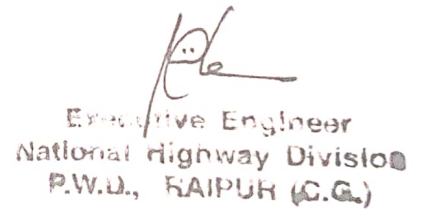 Executive Engineer
National Highway Division
P.W.D., RAIPUR (C.G.)